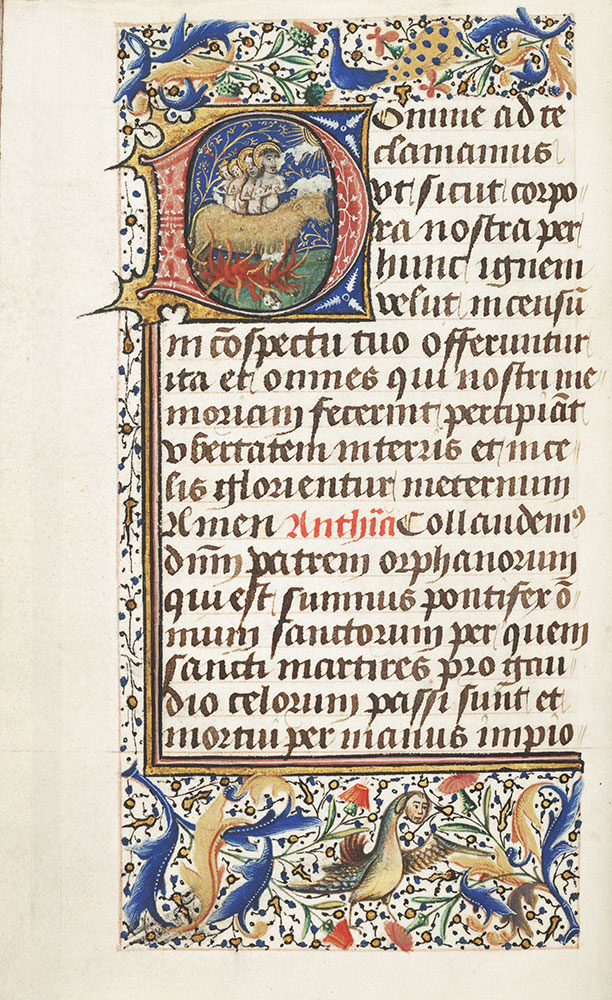 Domine ad te
clamamus
vt sicut corpo
ra nostra per
hunc ignem
velut incensū
in cōspectu tuo offeruntur
ita et omnes qui nostri me
moriam fecerint percipiāt
vbertatem interris et ince
lis glorientur ineternum
Amen Anthīa Collaudemꝰ
dnm̄ patrem orphanorum
qui est summus pontifex ō
mium sanctorum per quem
sancti martires pro gau
dio celorum passi sunt et
mortui per manus impio